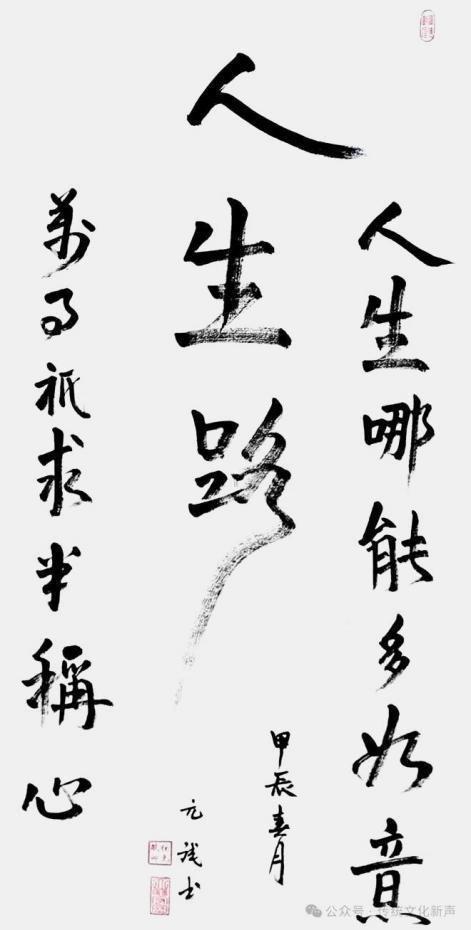 人生哪能多如意
人生路
萬事祇求半稱心
甲辰春月
元 书
公众号·传统文化新声